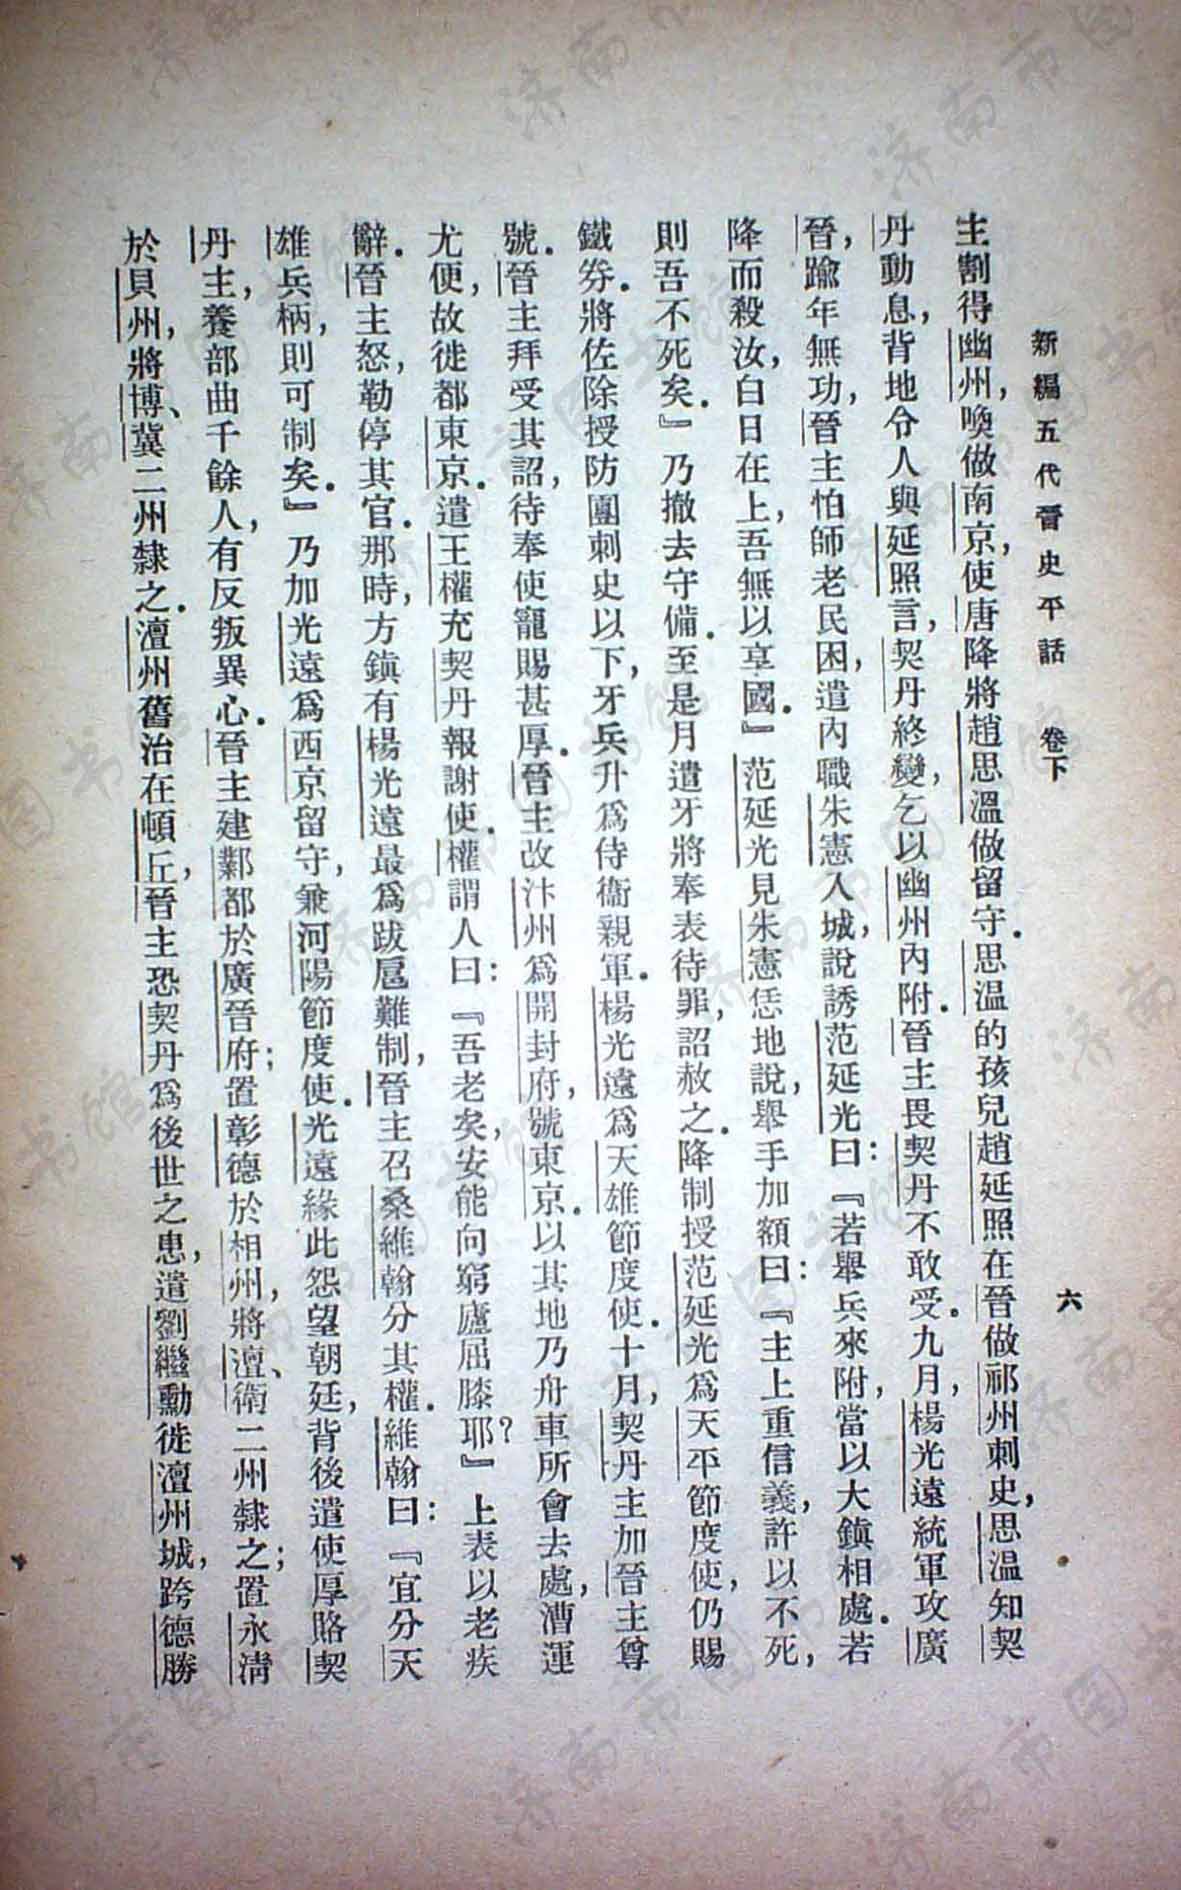 新編五代晉史平話　卷下　六
主割得幽州，喚做南京，使唐降將趙思溫做留守．思溫的孩兒趙延照在晉做祁州刺史，思溫知契
丹動息，背地令人與延照言，契丹終變，乞以幽州內附．晉主畏契丹不敢受．九月，楊光遠統軍攻廣
晉，踰年無功，晉主怕師老民困，遣內職朱憲入城，說誘范延光曰：『若舉兵來附，當以大鎮相處．若
降而殺汝，白日在上，吾無以享國．』范延光見朱憲恁地說，舉手加額曰：『主上重信義，許以不死，
則吾不死矣．』乃撤去守備．至是月遣牙將奉表待罪，詔赦之．降制授范延光爲天平節度使，仍賜
鐵券．將佐除授防團刺史以下，牙兵升爲侍衞親軍．楊光遠爲天雄節度使．十月，契丹主加晉主尊
號．晉主拜受其詔，待奉使寵賜甚厚．晉主改汴州爲開封府，號東京．以其地乃舟車所會去處，漕運
尤便，故徙都東京．遣王權充契丹報謝使．權謂人曰：『吾老矣，安能向窮廬屈膝耶？』上表以老疾
辭．晉主怒，勒停其官．那時，方鎮有楊光遠最爲跋扈難制，晉主召桑維翰分其權．維翰曰：『宜分天
雄兵柄，則可制矣．』乃加光遠爲西京留守，兼河陽節度使．光遠緣此怨望朝廷，背後遣使厚賂契
丹主，養部曲千餘人，有反叛異心．晉主建鄴都於廣晉府；置彰德於相州，將澶、衛二州隸之；置永淸
於貝州，將博、冀二州隸之．澶州舊治在頓丘，晉主恐契丹爲後世之患，遣劉繼勳徙澶州城，跨德勝
济南市图书馆